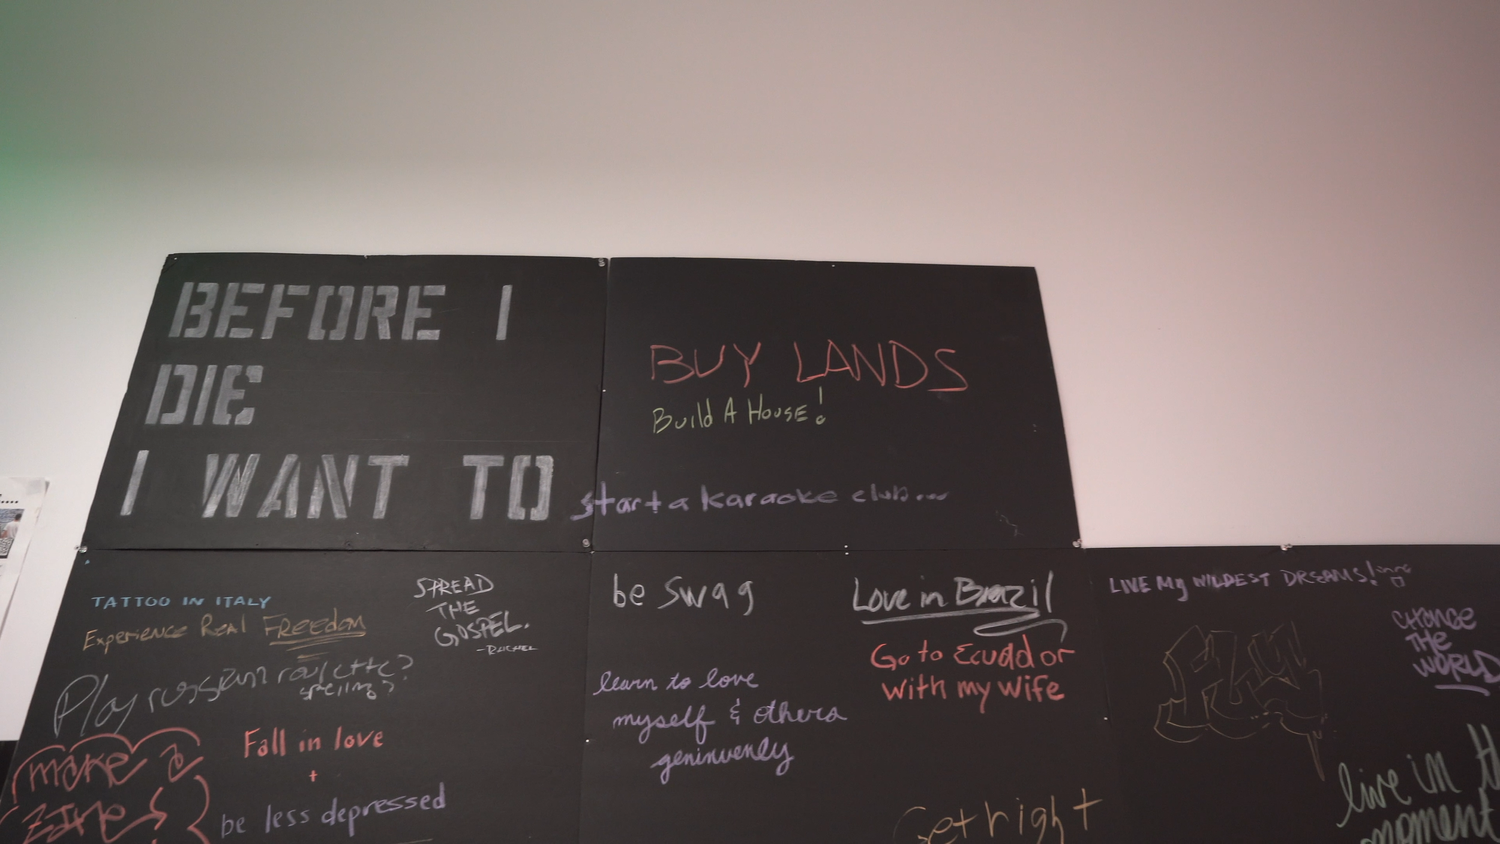 BEFORE I
DIE
I WANT TO
BUY LANDS
Build A House!
start a karaoke club...
TATTOO IN ITALY
Experience Real FREEDOM
SPREAD
THE
GOSPEL.
-RACHEL
Play russian roulette?
spelling?
make a
ZINE
Fall in love
+
be less depressed
be Swag
learn to love
myself & others
geninuenly
Love in Brazil
Go to Ecuador
with my wife
Get right
LIVE My WILDEST DREAMS!
CHANGE
THE
WORLD
live in th
moment